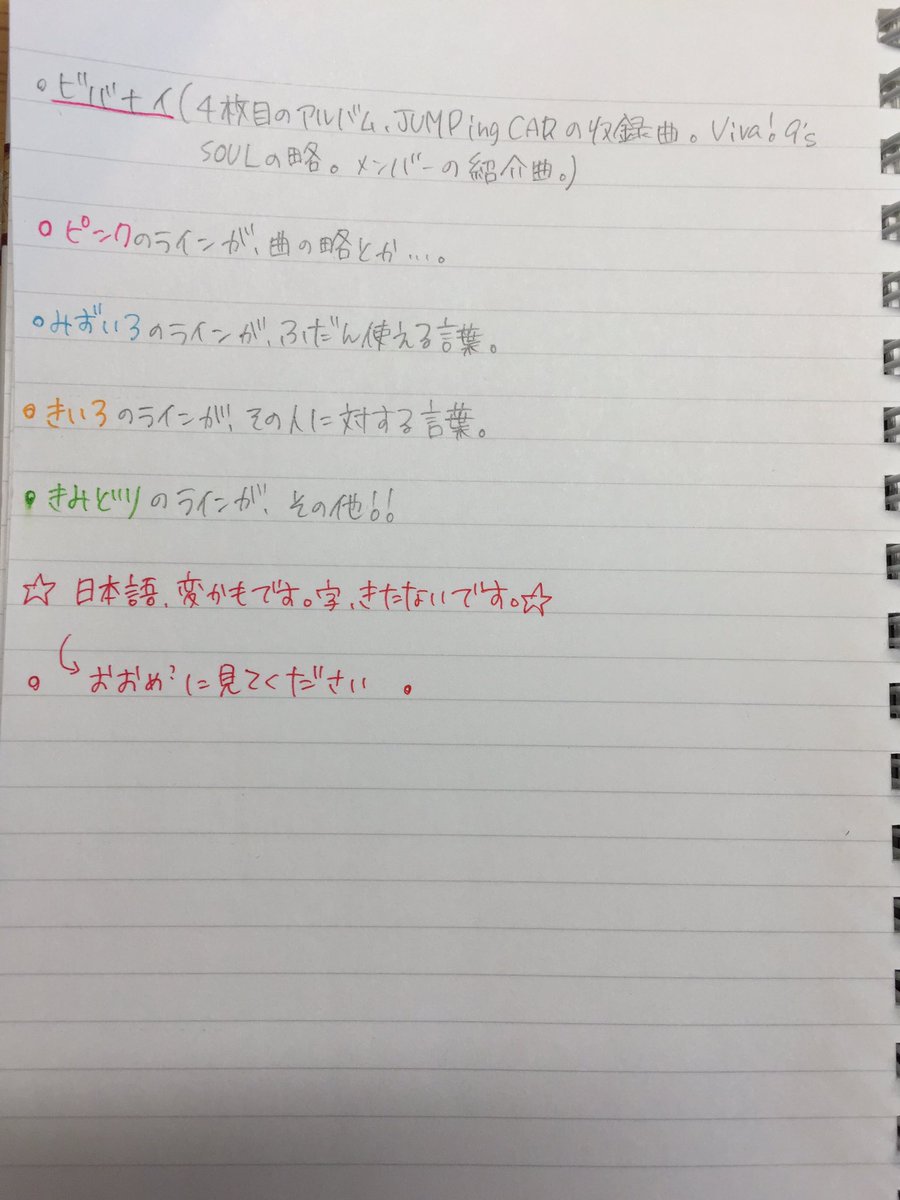 ○ビバナイ(4枚目のアルバム、JUMPing CARの収録曲。Viva!9's
SOULの略。メンバーの紹介曲。)
○ピンクのラインが、曲の略とか…。
○みずいろのラインが、ふだん使える言葉。
○きいろのラインが、その人に対する言葉。
○きみどりのラインが、その他!!
☆ 日本語、変かもです。字、きたないです。☆
○ おおめ?に見てください 。